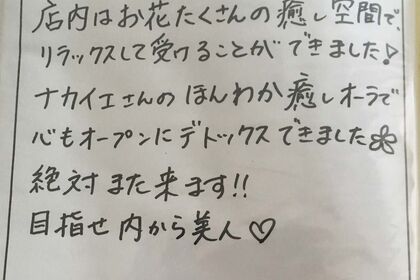 店内はお花たくさんの癒し空間で、
リラックスして受けることができました!
ナカイエさんのほんわか癒しオーラで
心もオープンにデトックスできました
絶対また来ます!!
目指せ内から美人♡